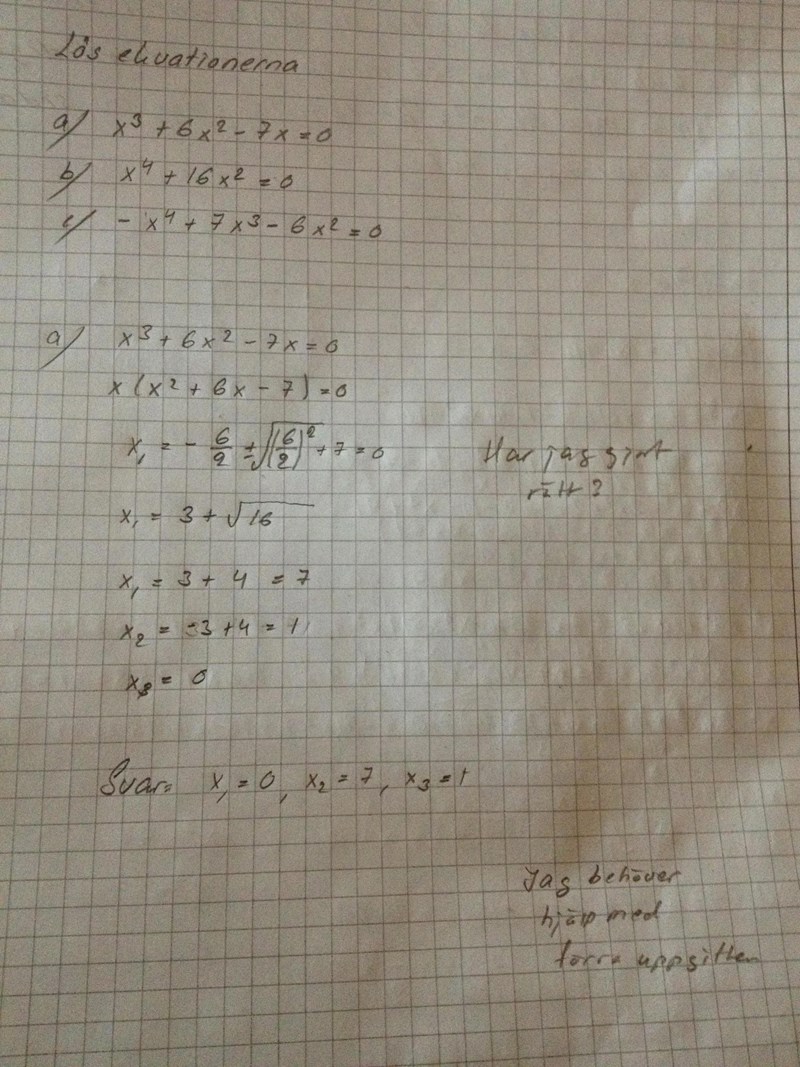 Lös ekvationerna
a) x³ + 6x² - 7x = 0
b) x⁴ + 16x² = 0
c) - x⁴ + 7x³ - 6x² = 0
a) x³ + 6x² - 7x = 0
x(x² + 6x - 7) = 0
x₁ = - 6/2 ± √(6/2)² + 7 = 0
Har jag gjort
rätt?
x₁ = 3 + √16
x₁ = 3 + 4 = 7
x₂ = -3 + 4 = 1
x₃ = 0
Svar = x₁ = 0, x₂ = 7, x₃ = 1
Jag behöver
hjälp med
uppgiften